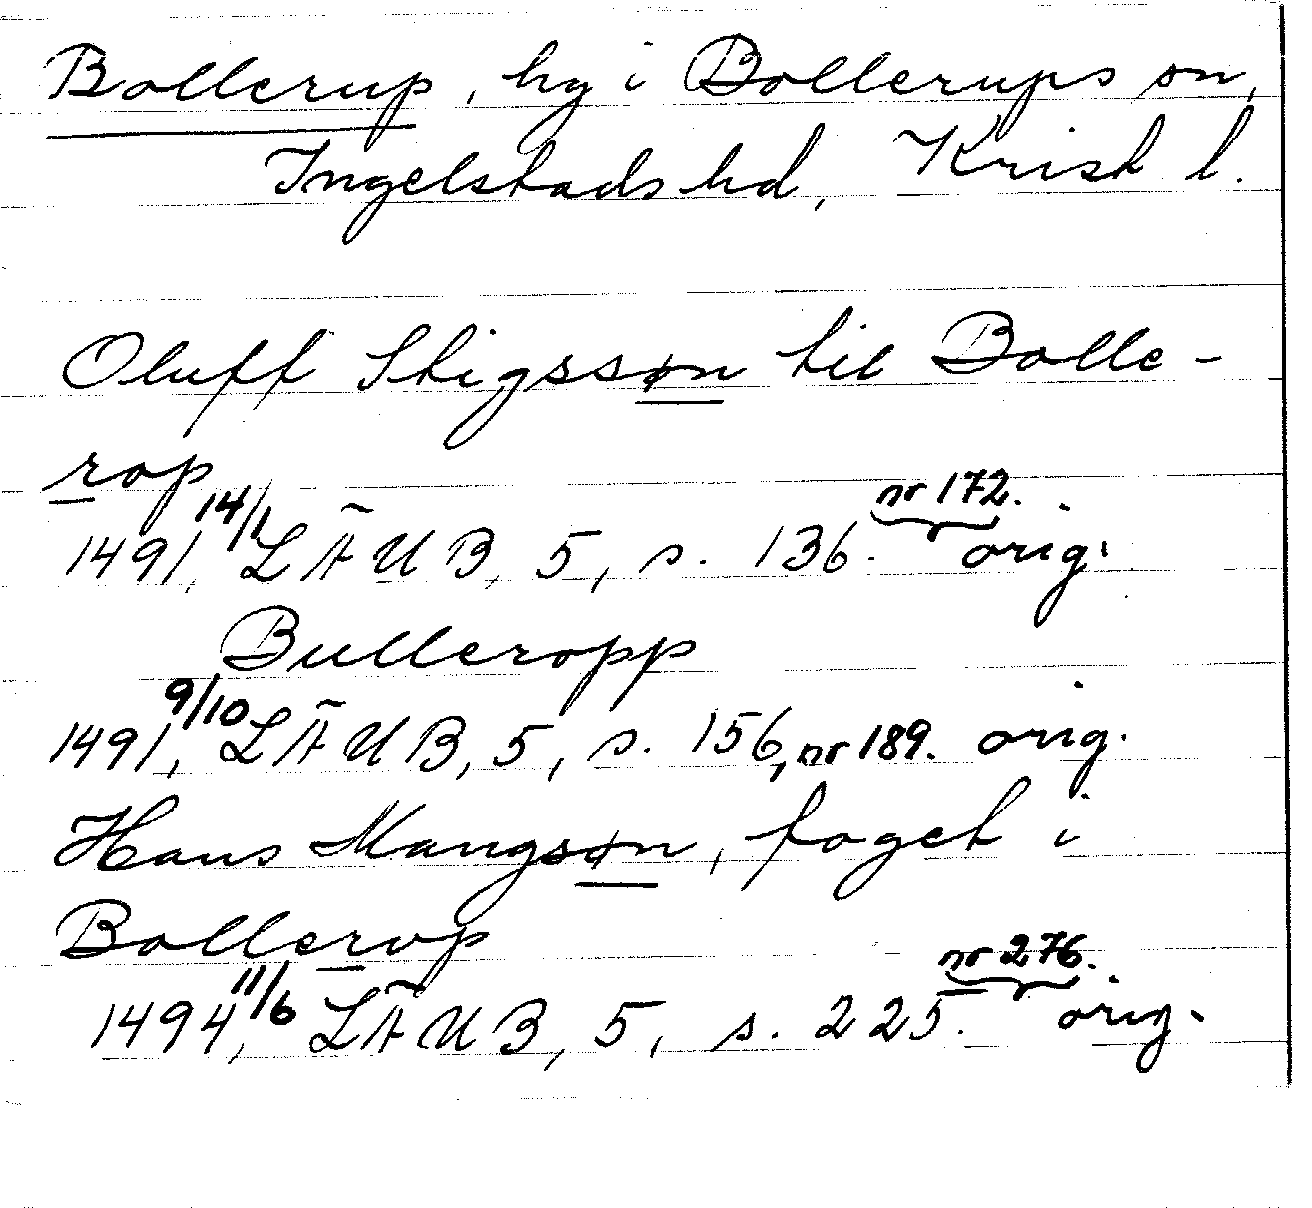 Bollerup, hg i Bollerups sn,
Ingelstads hd, Krist l.
Oluff Stigssøn til Bolle-
rop
1491, 14/1 LÄUB, 5, s. 136. nr 172. orig.
Bulleropp
1491, 9/10 LÄUB, 5, s. 156, nr 189. orig.
Hans Mangsøn, foget i
Bollerop
1494, 11/6 LÄUB, 5, s. 225. nr 276. orig.